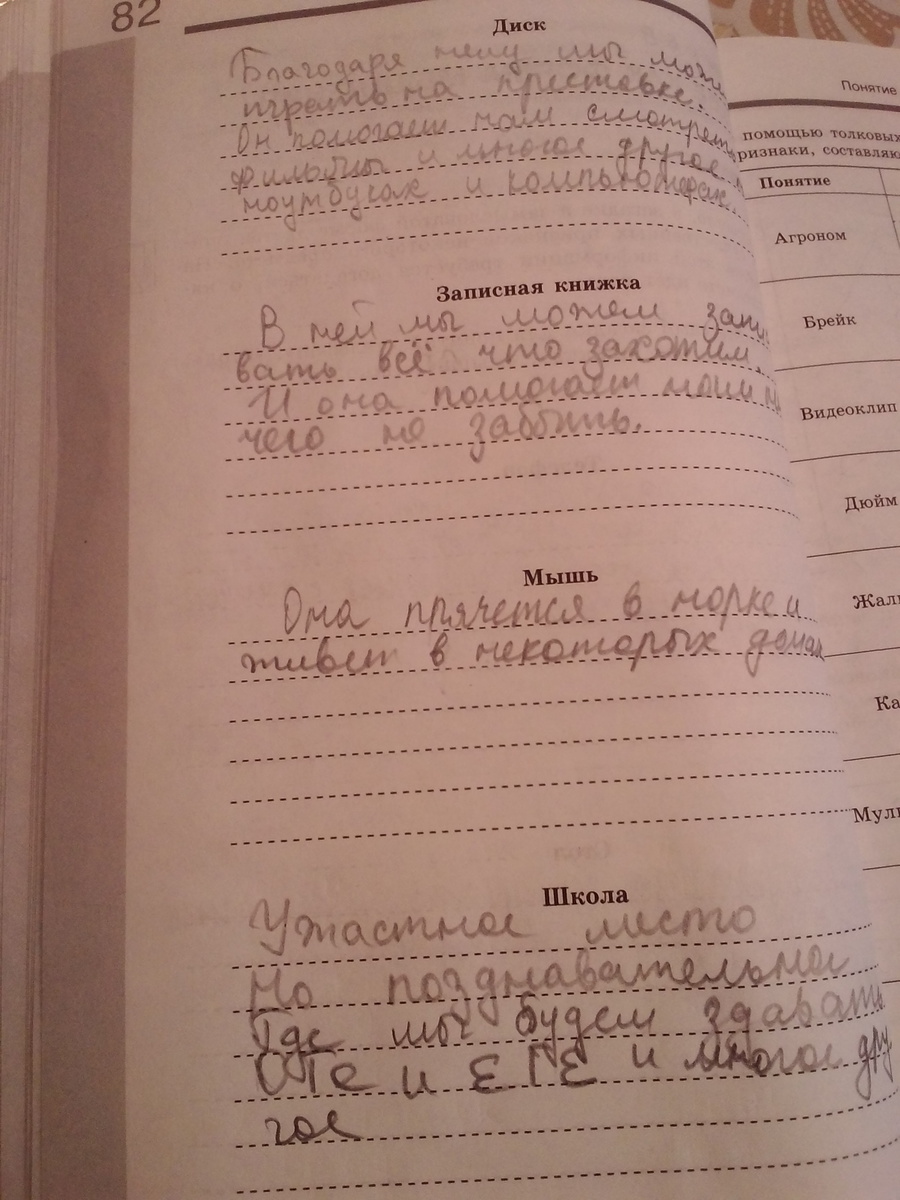 82
Диск
Благодаря нему мы може
играть на приставке.
Он помогает нам смотреть
фильмы и многое другое
ноутбуках и компьютерах.
Записная книжка
В ней мы можем запи
вать всё что захотим
И она помогает нам
чего не забыть.
Мышь
Она прячется в норке и
живет в некоторых домах
Школа
Ужастное место
Но позднавательное
Где мы будем здавать
ОГЕ и ЕГЕ и многое дру
гое
Понятие
помощью толковых
ризнаки, составляю
Понятие
Агроном
Брейк
Видеоклип
Дюйм
Жал
Ка
Мул